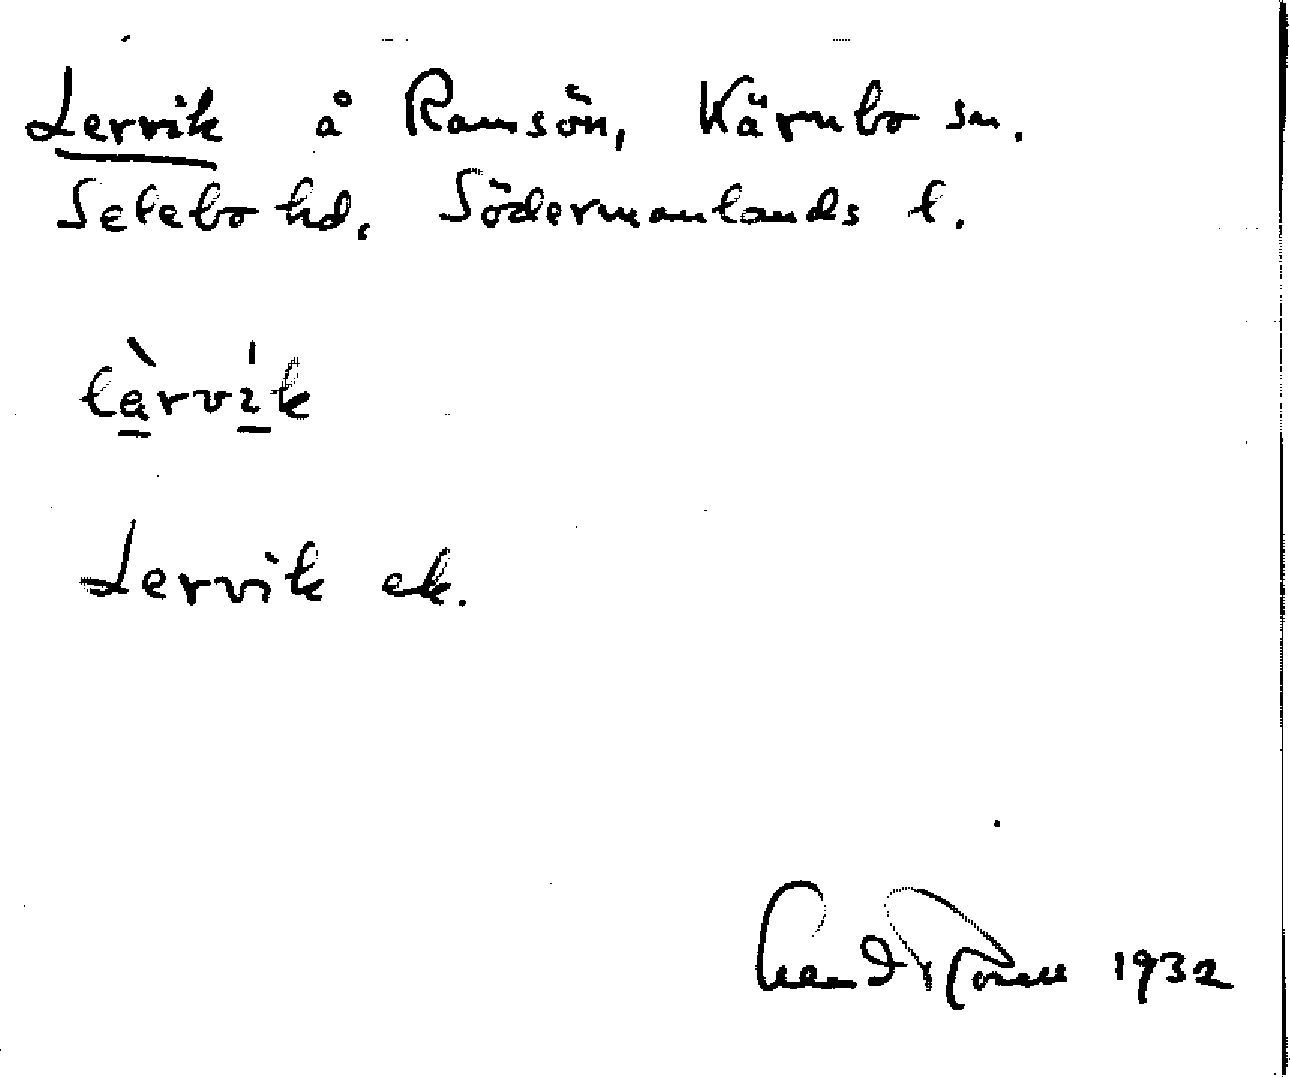 Lervik å Ramsön, Kärnbo sn.
Selebo hd, Södermanlands l.
làrvik
Lervik ek.
1932